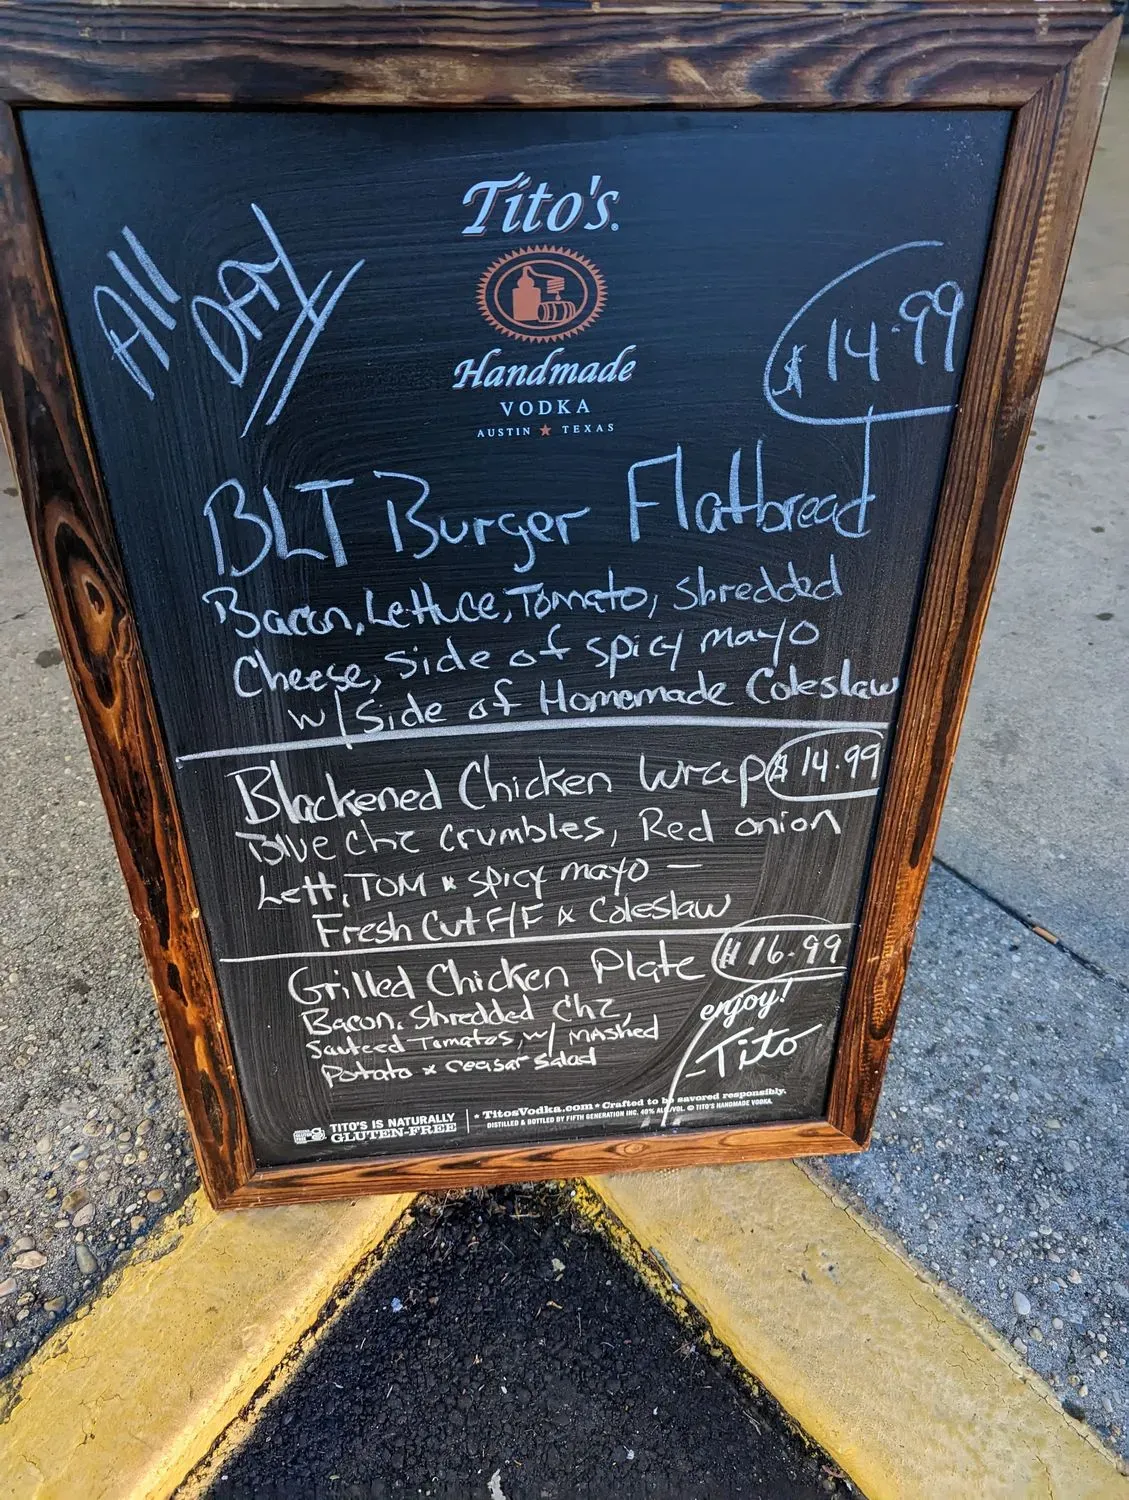 All DAY
Tito's.
Handmade
VODKA
AUSTIN ★ TEXAS
$14.99
BLT Burger Flatbread
Bacon, Lettuce, Tomato, shredded
Cheese, side of spicy mayo
w/ side of Homemade Coleslaw
Blackened Chicken Wrap $14.99
Blue chz crumbles, Red onion
Lett, TOM & spicy mayo —
Fresh Cut F/F & Coleslaw
Grilled Chicken Plate $16.99
Bacon, Shredded Chz,
Sauteed Tomatos, w/ MAshed
Potato & ceasar salad
enjoy!
-Tito
TITO'S IS NATURALLY
GLUTEN-FREE
* TitosVodka.com * Crafted to be savored responsibly.
DISTILLED & BOTTLED BY FIFTH GENERATION INC. 40% ALC/VOL. © TITO'S HANDMADE VODKA.